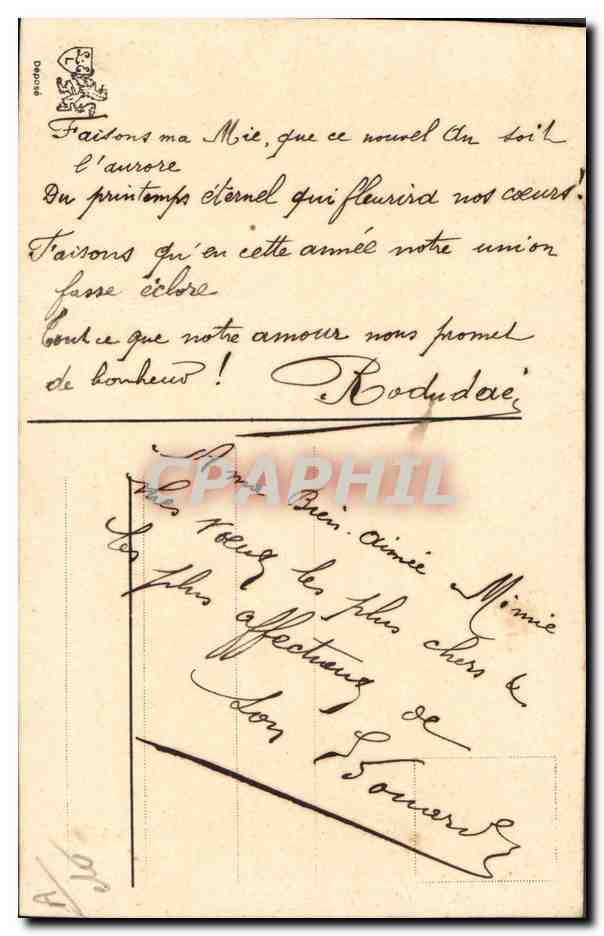 Déposé
Faisons ma Mie, que ce nouvel An soit
l'aurore
Du printemps éternel qui fleurira nos cœurs!
Faisons qu'en cette année notre union
fasse éclore
Tout ce que notre amour nous promet
de bonheur !
CPAPHIL
A ma Bien-aimée Mimie
mes vœux les plus chers &
les plus affectueux de
son